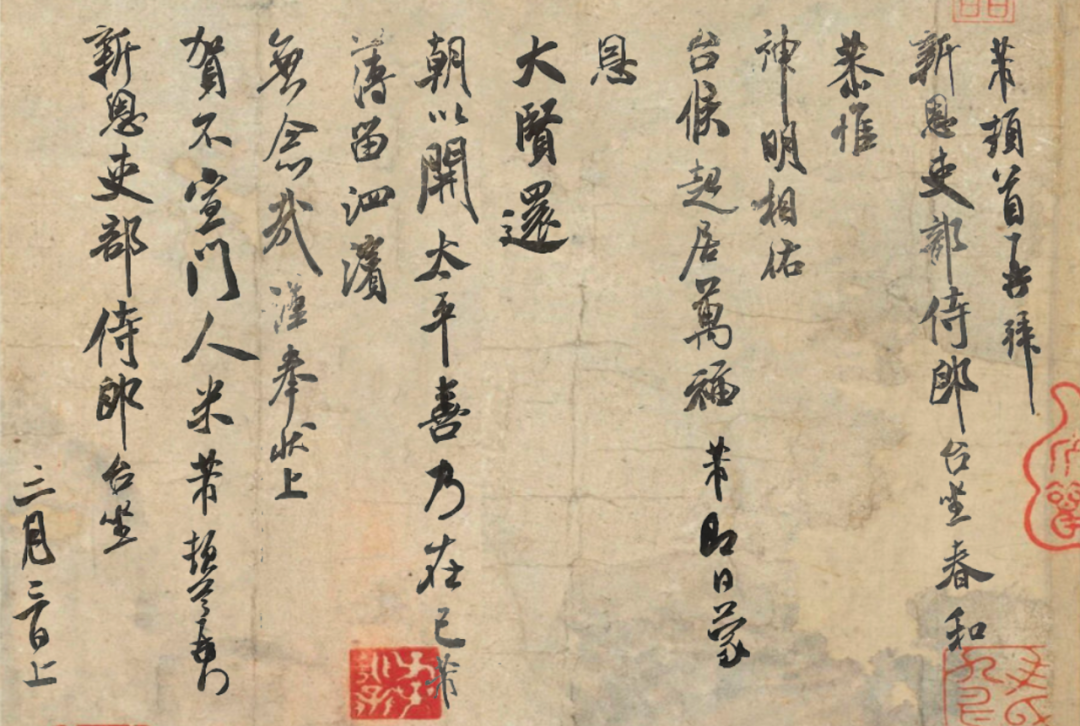 芾頓首再拜
新恩吏部侍郎台坐春和
恭惟
神明相佑
台候起居萬福芾即日蒙
恩
大賢還
朝以開太平喜乃在己芾
薄留泗濱
無念哉謹奉狀上
賀不宣門人米芾頓首再拜
新恩吏部侍郎台坐
三月三日上